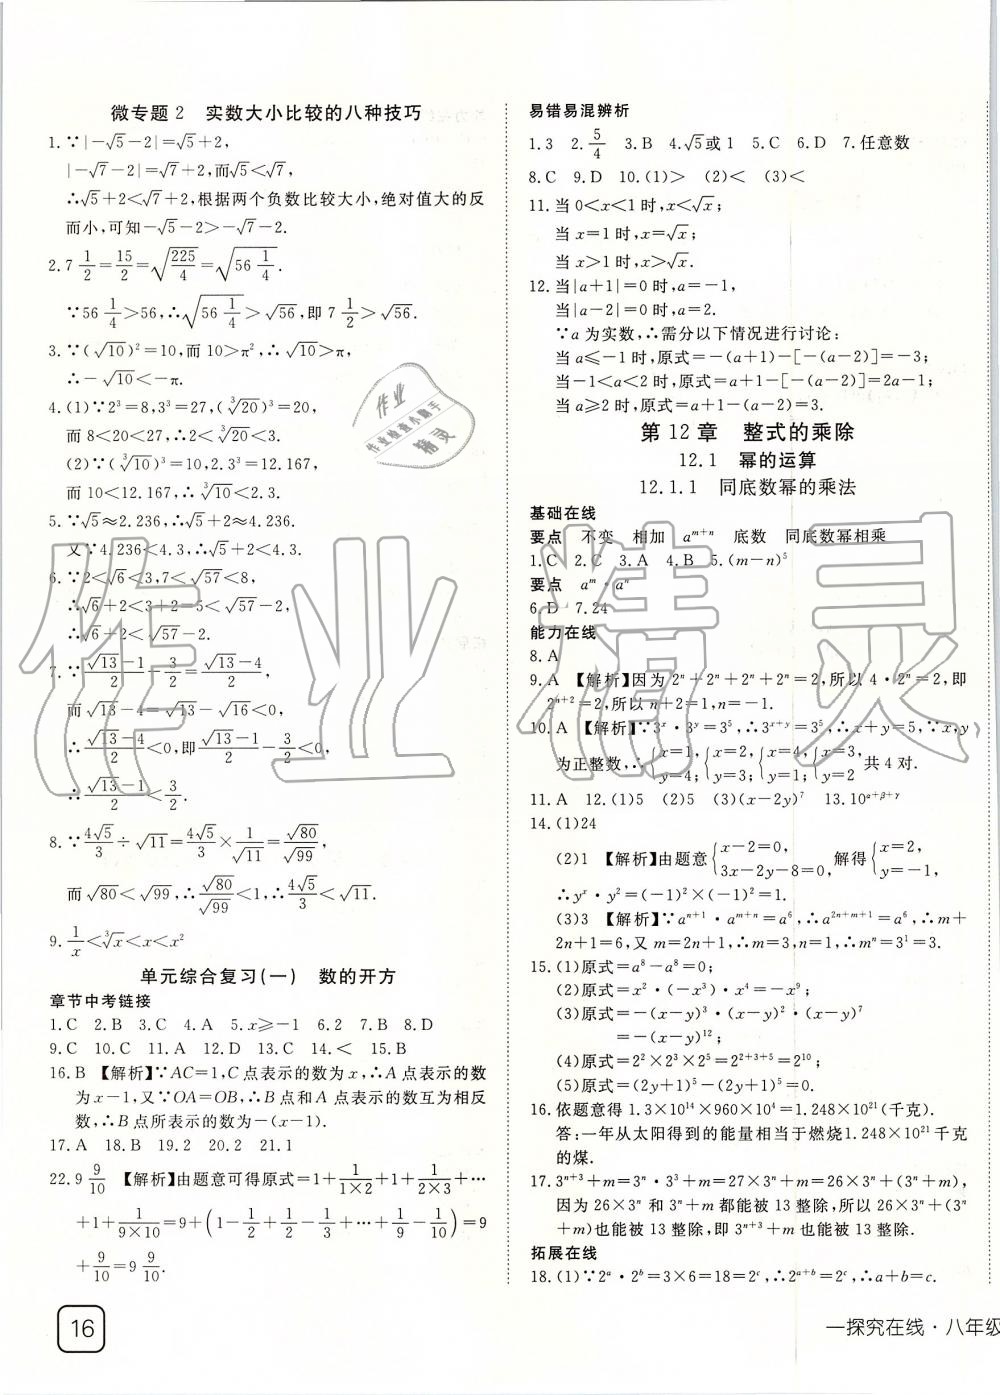 微专题2 实数大小比较的八种技巧
1.∵|-√5-2|=√5+2,
|-√7-2|=√7+2,而√5<√7,
∴√5+2<√7+2,根据两个负数比较大小,绝对值大的反
而小,可知-√5-2>-√7-2.
2.7 1/2=15/2=√(225/4)=√(56 1/4).
∵56 1/4>56,∴√(56 1/4)>√56,即 7 1/2>√56.
3.∵(√10)²=10,而 10>π²,∴√10>π,
∴-√10<-π.
4.(1)∵2³=8,3³=27,(∛20)³=20,
而 8<20<27,∴2<∛20<3.
(2)∵(∛10)³=10,2.3³=12.167,
而 10<12.167,∴∛10<2.3.
5.∵√5≈2.236,∴√5+2≈4.236.
又∵4.236<4.3,∴√5+2<4.3.
6.∵2<√6<3,7<√57<8,
∴√6+2<3+2=5<√57-2,
∴√6+2<√57-2.
7.∵(√13-1)/2-3/2=(√13-4)/2,
而√13-4=√13-√16<0,
∴(√13-4)/2<0,即(√13-1)/2-3/2<0,
∴(√13-1)/2<3/2.
8.∵4√5/3÷√11=4√5/3×1/√11=√80/√99,
而√80<√99,∴√80/√99<1,∴4√5/3<√11.
9.1/x<∛x<x<x²
单元综合复习(一) 数的开方
章节中考链接
1.C 2.B 3.C 4.A 5.x≥-1 6.2 7.B 8.D
9.C 10.C 11.A 12.D 13.C 14.< 15.B
16.B 【解析】∵AC=1,C点表示的数为x,∴A点表示的数
为x-1,又∵OA=OB,∴B点和A点表示的数互为相反
数,∴B点所表示的数为-(x-1).
17.A 18.B 19.2 20.2 21.1
22.9 9/10 【解析】由题意可得原式=1+1/(1×2)+1+1/(2×3)+…
+1+1/(9×10)=9+(1-1/2+1/2-1/3+…+1/9-1/10)=9
+9/10=9 9/10.
16
易错易混辨析
1.3 2.5/4 3.B 4.√5或1 5.C 6.D 7.任意数
8.C 9.D 10.(1)> (2)< (3)<
11.当 0<x<1 时,x<√x;
当 x=1 时,x=√x;
当 x>1 时,x>√x.
12.当|a+1|=0时,a=-1,
当|a-2|=0时,a=2.
∵a 为实数,∴需分以下情况进行讨论:
当a≤-1时,原式=-(a+1)-[-(a-2)]=-3;
当-1<a<2 时,原式=(a+1)-[-(a-2)]=2a-1;
当a≥2 时,原式=a+1-(a-2)=3.
第12章 整式的乘除
12.1 幂的运算
12.1.1 同底数幂的乘法
基础在线
要点 不变 相加 aᵐ⁺ⁿ 底数 同底数幂相乘
1.C 2.C 3.A 4.B 5.(m-n)⁵
要点 aᵐ·aⁿ
6.D 7.24
能力在线
8.A
9.A 【解析】因为 2ⁿ+2ⁿ+2ⁿ+2ⁿ=2,所以 4·2ⁿ=2,即
2ⁿ⁺²=2,所以 n+2=1,n=-1.
10.A 【解析】∵3ˣ·3ʸ=3⁵,∴3ˣ⁺ʸ=3⁵,∴x+y=5,∵x,y
为正整数,∴{x=1,y=4; {x=2,y=3; {x=4,y=1; {x=3,y=2 共 4 对.
11.A 12.(1)5 (2)5 (3)(x-2y)⁷ 13.10^(α+β+γ)
14.(1)24
(2)1 【解析】由题意{x-2=0, 3x-2y-8=0, 解得{x=2, y=-1,
∴yˣ·y²=(-1)²×(-1)²=1.
(3)3 【解析】∵aⁿ⁺¹·aᵐ⁺ⁿ=a⁶,∴a²ⁿ⁺ᵐ⁺¹=a⁶,∴m+
2n+1=6,又 m=2n+1,∴m=3,n=1,∴mⁿ=3¹=3.
15.(1)原式=a⁸-a⁸=0;
(2)原式=x²·(-x³)·x⁴=-x⁹;
(3)原式=-(x-y)³·(x-y)²·(x-y)⁷
=-(x-y)¹²;
(4)原式=2²×2³×2⁵=2²⁺³⁺⁵=2¹⁰;
(5)原式=(2y+1)⁵-(2y+1)⁵=0.
16.依题意得 1.3×10¹⁴×960×10⁴=1.248×10²¹(千克).
答:一年从太阳得到的能量相当于燃烧1.248×10²¹千克
的煤.
17.3ⁿ⁺³+m=3ⁿ·3³+m=27×3ⁿ+m=26×3ⁿ+(3ⁿ+m),
因为 26×3ⁿ 和 3ⁿ+m 都能被 13 整除,所以 26×3ⁿ+(3ⁿ
+m)也能被 13 整除,即 3ⁿ⁺³+m 也能被 13 整除.
拓展在线
18.(1)∵2ᵃ·2ᵇ=3×6=18=2ᶜ,∴2ᵃ⁺ᵇ=2ᶜ,∴a+b=c.
一探究在线·八年级
作业精灵
作业
作业快查小助手
精灵